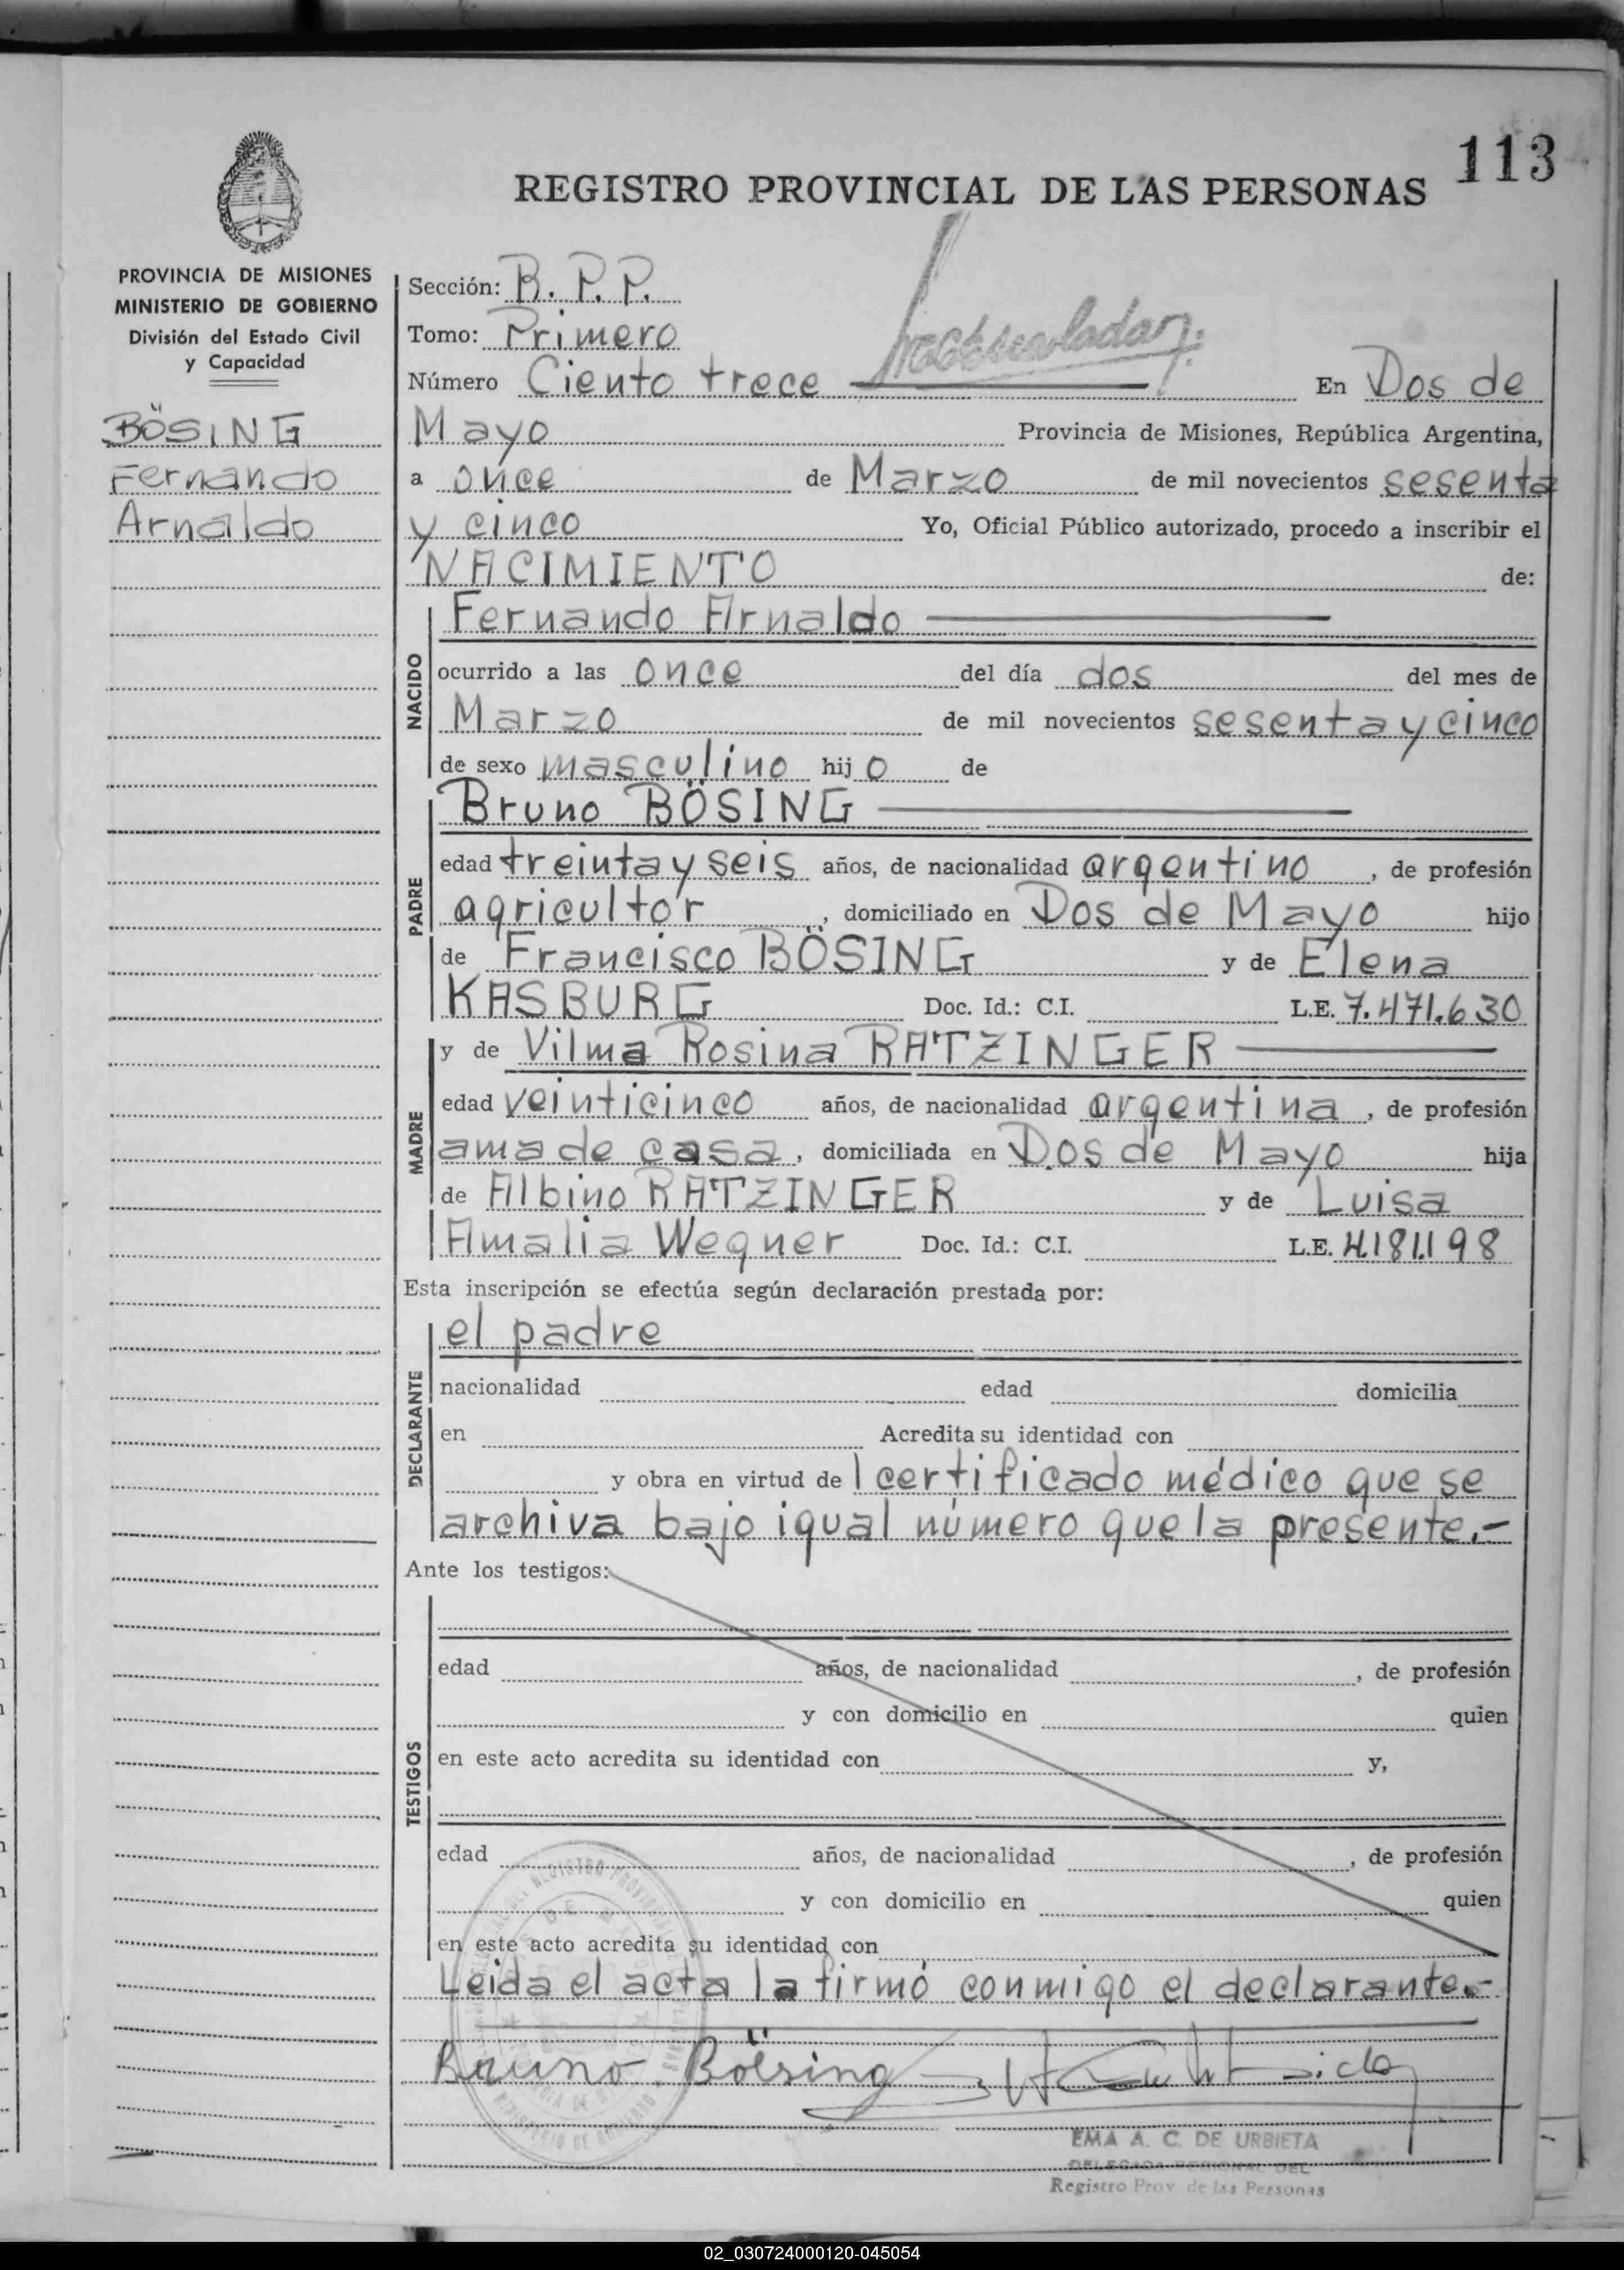 113
REGISTRO PROVINCIAL DE LAS PERSONAS
PROVINCIA DE MISIONES
MINISTERIO DE GOBIERNO
División del Estado Civil
y Capacidad
BÖSING
Fernando
Arnaldo
Sección: B. P. P.
Tomo: Primero
Número Ciento trece En Dos de
Mayo Provincia de Misiones, República Argentina,
a once de Marzo de mil novecientos sesenta
y cinco Yo, Oficial Público autorizado, procedo a inscribir el
NACIMIENTO de:
NACIDO
Fernando Arnaldo
ocurrido a las once del día dos del mes de
Marzo de mil novecientos sesenta y cinco
de sexo masculino hijo de
PADRE
Bruno BÖSING
edad treinta y seis años, de nacionalidad argentino, de profesión
agricultor, domiciliado en Dos de Mayo hijo
de Francisco BÖSING y de Elena
KASBURG Doc. Id.: C.I. L.E. 7.471.630
MADRE
y de Vilma Rosina RATZINGER
edad veinticinco años, de nacionalidad argentina, de profesión
ama de casa, domiciliada en Dos de Mayo hija
de Albino RATZINGER y de Luisa
Amalia Wegner Doc. Id.: C.I. L.E. 4.181.198
Esta inscripción se efectúa según declaración prestada por:
DECLARANTE
el padre
nacionalidad edad domicilia
en Acredita su identidad con
y obra en virtud del certificado médico que se
archiva bajo igual número que la presente.-
Ante los testigos:
TESTIGOS
edad años, de nacionalidad , de profesión
y con domicilio en quien
en este acto acredita su identidad con y,
edad años, de nacionalidad , de profesión
y con domicilio en quien
en este acto acredita su identidad con
Leida el acta la firmó conmigo el declarante.-
Bruno Bösing
EMA A. C. DE URBIETA
DELEGADA REGIONAL DEL
Registro Prov. de las Personas
02_030724000120-045054